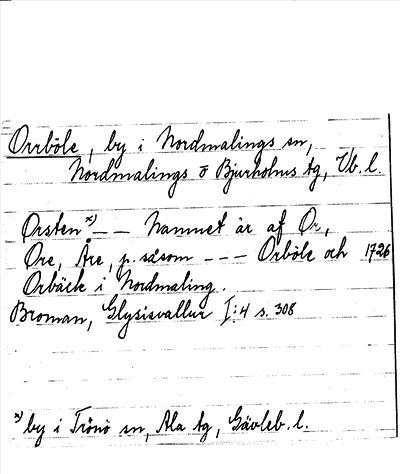 Orrböle, by i Nordmalings sn,
Nordmalings o Bjurholms tg, Vb. l.
Orsten x) — — Namnet är af Or,
Ore, Åre, p. såsom — — — Orböle och 1726
Orbäck i Nordmaling.
Broman, Glysisvallur I:4 s. 308
x) by i Trönö sn, Ala tg, Gävleb. l.